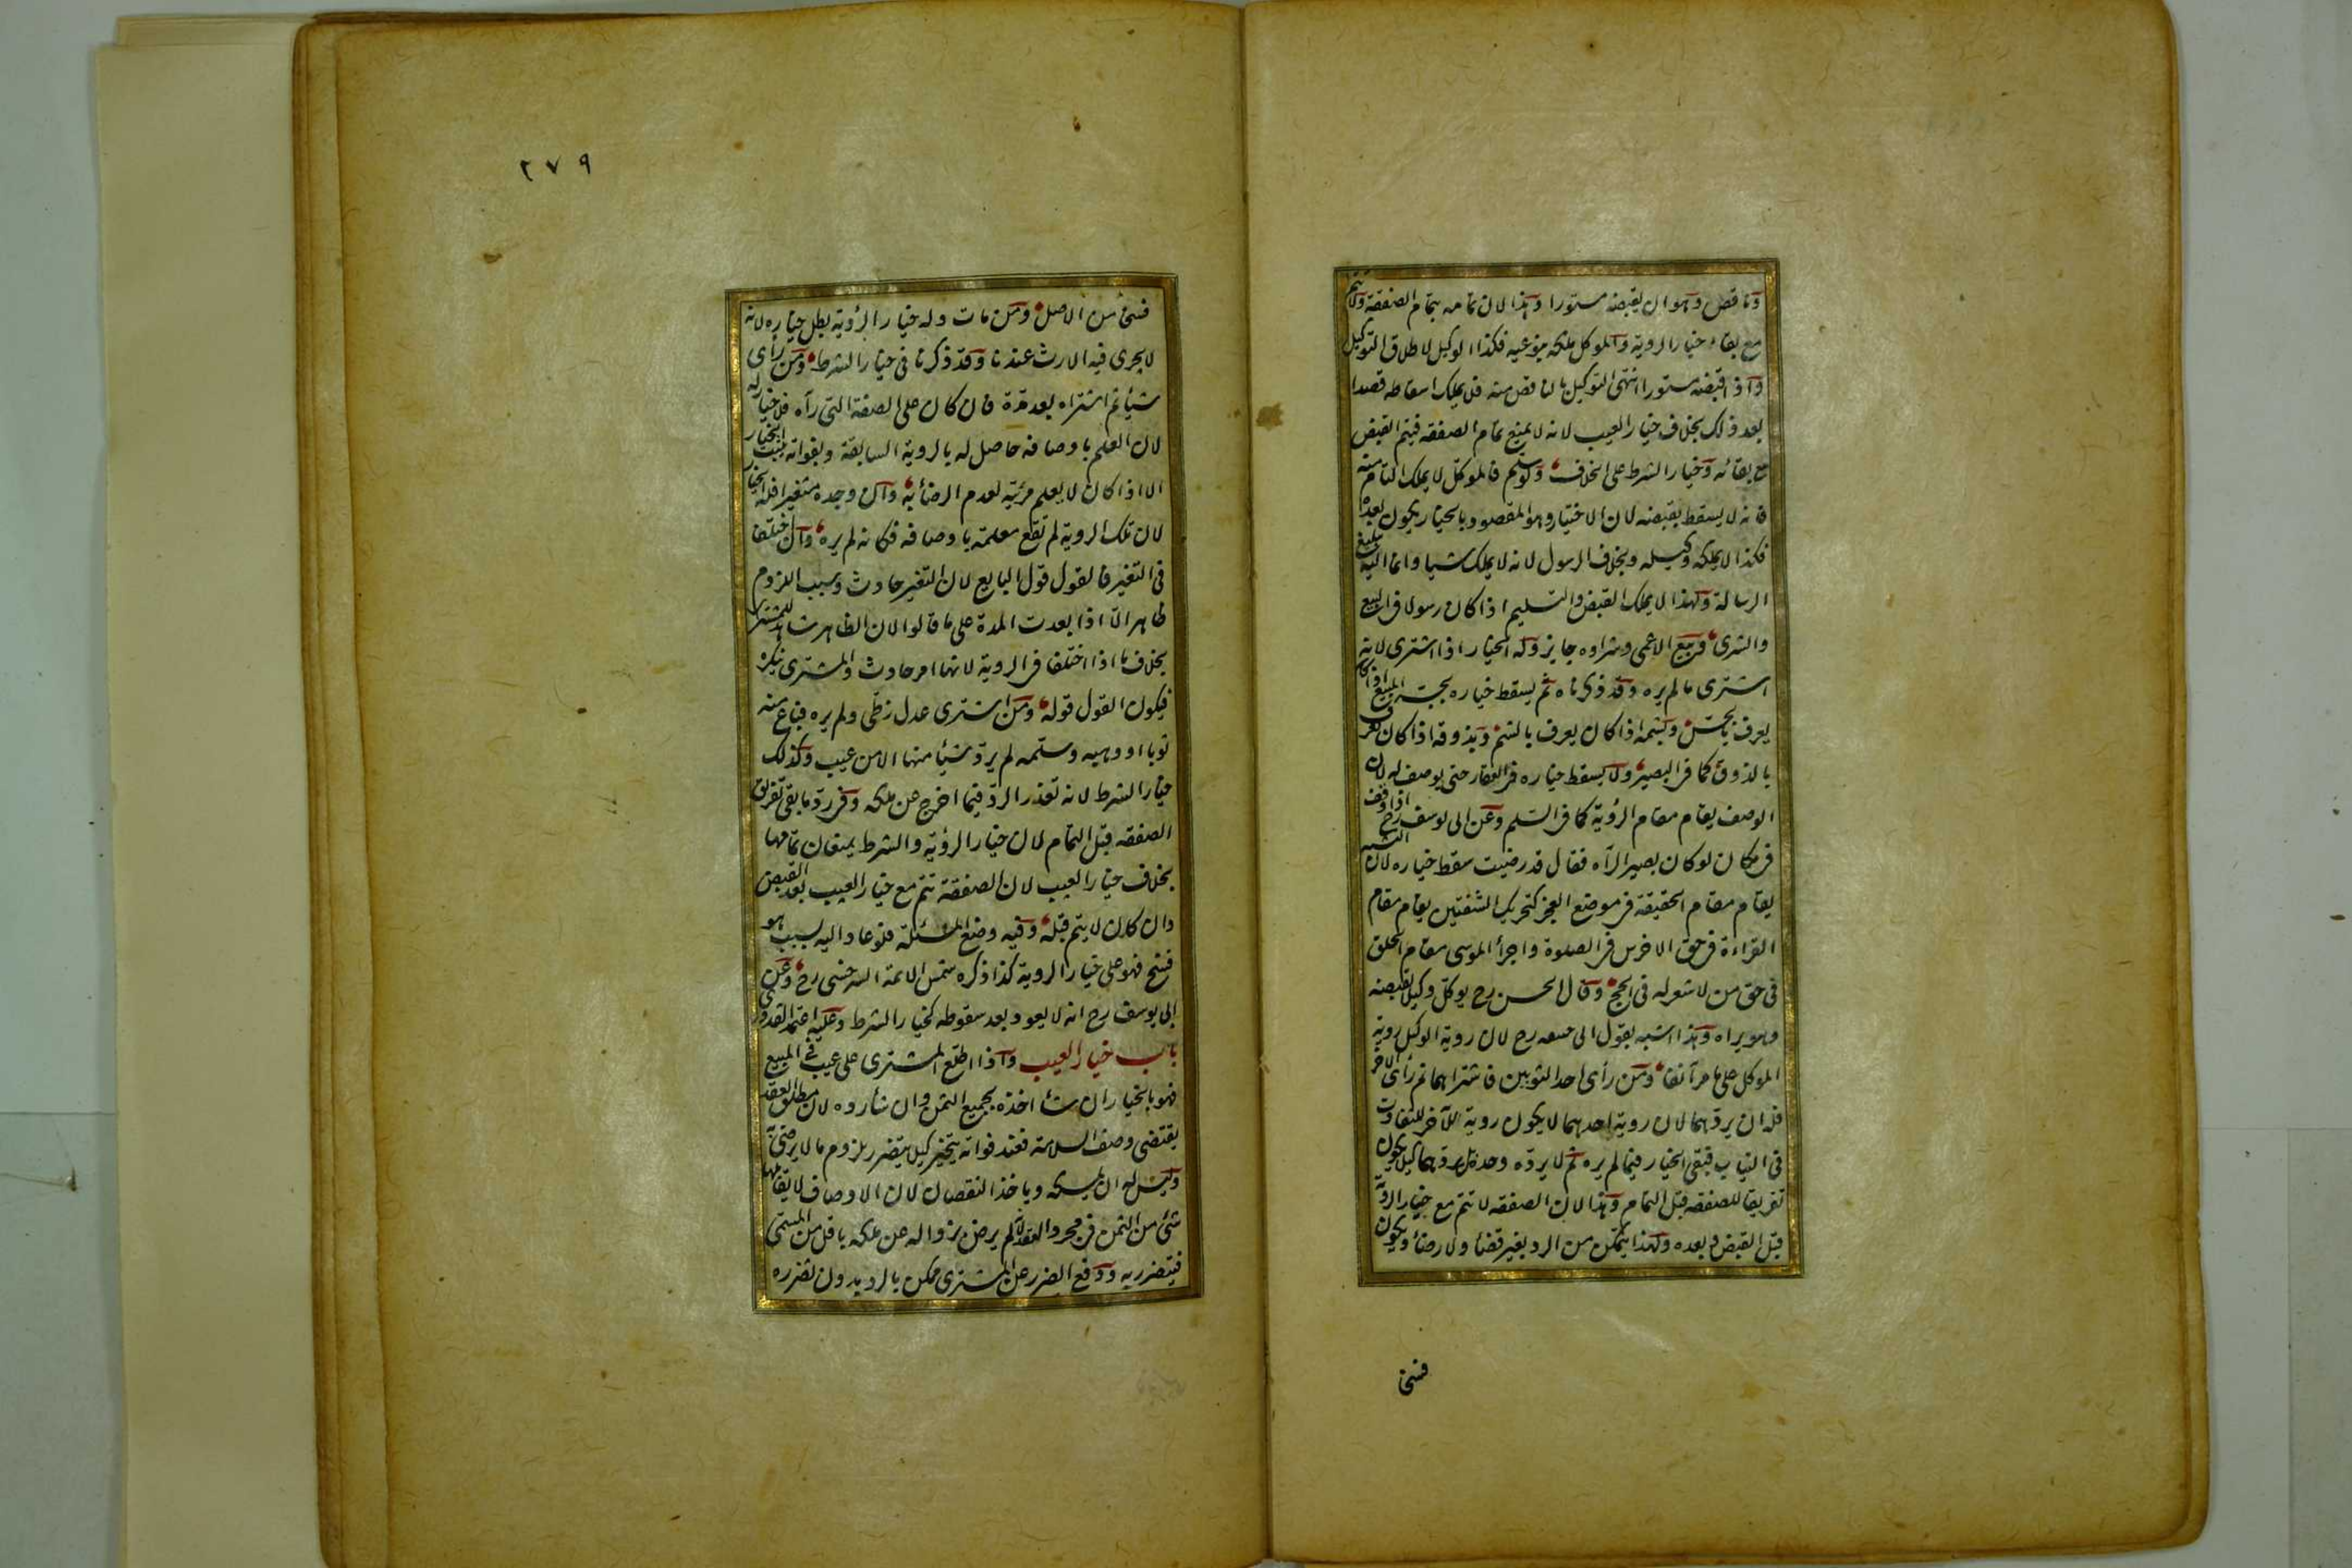 وناقص وهو ان يقبضه مستورا وهذا لان تمامه بتمام الصفقة ولا تتم
مع بقاء خيار الروية والموكل ملكه بنوعيه فكذا الوكيل لاطلاق التوكيل
واذا قبضه مستورا انتهى التوكيل بالناقص منه فلا يملك اسقاطه قصدا
بعد ذلك بخلاف خيار العيب لانه لا يمنع تمام الصفقه فيتم القبض
مع بقائه وخيار الشرط على الخلاف ولو سلم فالموكل لا يملك التام منه
فانه لا يسقط بقبضه لان الاختيار وهو المقصود بالخيار يكون بعده
فكذا لا يملكه وكيله وبخلاف الرسول لانه لا يملك شيا وانما اليه تبليغ
الرسالة ولهذا لا يملك القبض والتسليم اذا كان رسولا فى البيع
والشرى وبيع الاعمى وشراوه جايز وله الخيار اذا اشترى لانه
اشترى مالم يره وقد ذكرناه ثم يسقط خياره بجسه المبيع اذا كان
يعرف بالجس وبشمه اذا كان يعرف بالشم وبذوقه اذا كان يعرف
بالذوق كما فى البصير ولا يسقط خياره فى العقار حتى يوصف له لان
الوصف يقام مقام الرؤية كما فى السلم وعن ابى يوسف رح اذا وقف
فى مكان لو كان بصيرا لرآه فقال قد رضيت سقط خياره لان التشبه
يقام مقام الحقيقة فى موضع العجز كتحريك الشفتين يقام مقام
القراءة فى حق الاخرس فى الصلوة واجرأ الموسى مقام الحلق
فى حق من لا شعر له فى الحج وقال الحسن رح يوكل وكيلا بقبضه
وهو يراه وهذا اشبه بقول ابى حنيفه رح لان روية الوكيل روية
الموكل على ما مر آنفا ومن رأى احد الثوبين فاشتراهما ثم رأى الآخر
فله ان يردهما لان روية احدهما لا يكون روية الآخر للتفاوت
فى الثياب فبقى الخيار فيما لم يره ثم لا يرده وحده بل يردهما كيلا يكون
تفريقا للصفقه قبل التمام وهذا لان الصفقه لا تتم مع خيار الروية
قبل القبض وبعده ولهذا يتمكن من الرد بغير قضأ ولا رضأ ويكون
فسخا
٢٧٩
فسخا من الاصل ومن مات وله خيار الرؤية بطل خياره لانه
لا يجرى فيه الارث عندنا وقد ذكرنا فى خيار الشرط ومن رأى
شيأ ثم اشتراه بعد مدة فان كان على الصفة التى رآه فلا خيار له
لان العلم باوصافه حاصل له بالروية السابقة وبفواته يثبت الخيار
الا اذا كان لا يعلم مرئيه لعدم الرضأ به وان وجده متغيرا فله الخيار
لان تلك الروية لم تقع معلمة باوصافه فكانه لم يره وان اختلفا
فى التغير فالقول قول البايع لان التغير حادث وسبب اللزوم
ظاهر الا اذا بعدت المدة على ما قالوا لان الظاهر شاهد للمشترى
بخلاف ما اذا اختلفا فى الروية لانها امر حادث والمشترى ينكره
فيكون القول قوله ومن اشترى عدل زطى ولم يره فباع منه
ثوبا او وهبه وسلمه لم يرد شيأ منها الا من عيب وكذلك
خيار الشرط لانه تعذر الرد فيما اخرج عن ملكه وفى رد ما بقى تفريق
الصفقه قبل التمام لان خيار الرؤية والشرط يمنعان تمامها
بخلاف خيار العيب لان الصفقة تتم مع خيار العيب بعد القبض
وان كان لا يتم قبله وفيه وضع المسئلة فلو عاد اليه بسبب هو
فسخ فهو على خيار الروية كذا ذكره شمس الائمة السرخسى رح وعن
ابى يوسف رح انه لا يعود بعد سقوطه كخيار الشرط وعليه اعتمد القدورى
باب خيار العيب واذا اطلع المشترى على عيب فى المبيع
فهو بالخيار ان شأ اخذه بجميع الثمن وان شأ رده لان مطلق العقد
يقتضى وصف السلامة فعند فواته يتخير كيلا يتضرر بلزوم ما لا يرضى به
وليس له ان يمسكه وياخذ النقصان لان الاوصاف لا يقابلها
شئ من الثمن فى مجرد العقد ولانه لم يرض بزواله عن ملكه باقل من المسمى
فيتضرر به ودفع الضرر عن المشترى ممكن بالرد بدون تضرره